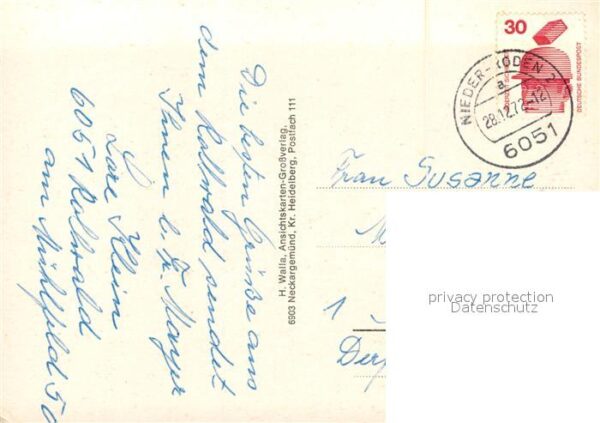 Die besten Grüße aus
dem Rollwald sendet
Ihnen l. Fr. Mayer
Lore Klein
6051 Rollwald
am Mühlfeld 50
H. Walla, Ansichtskarten-Großverlag,
6903 Neckargemünd, Kr. Heidelberg, Postfach 111
30
DEUTSCHE BUNDESPOST
NIEDER-RODEN 2
a
28.12.72-12
6051
Frau Susanne
M
1
Der
privacy protection
Datenschutz